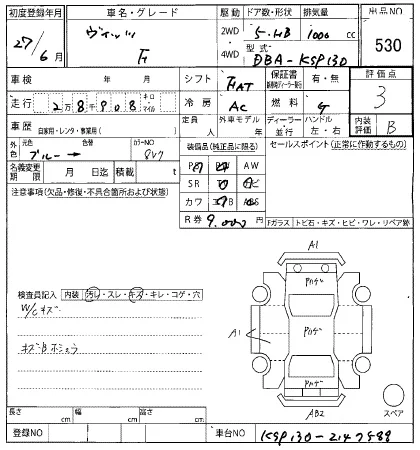 初度登録年月 車名・グレード 駆動 ドア数・形状 排気量 出品NO
27/6月 ヴィッツ F 2WD 4WD 5・HB 1000 cc 530
型式 DBA-KSP130
車検 年 月 シフト FAT 保証書 有・無 評価点 3
走行 2万8千908 キロ マイル 冷房 AC 燃料 G
車歴 自家用・レンタ・事業用( ) 定員 人 外車モデル 年 ディーラー 並行 ハンドル 左・右 内装評価 B
色 元色 ブルー→ 色替 カラーNO 8W7 装備品(純正品に限る) セールスポイント(正常に作動するもの)
名義変更期限 月 日迄 積載 t PS PW AW
注意事項(欠品・修復・不具合箇所および状態) SR ナビ
カワ ABS
R券 9,000円 Fガラス トビ石・キズ・ヒビ・ワレ・リペア跡
A1
検査員記入 内装 汚れ・スレ・キズ・キレ・コゲ・穴
W/Cキズ
A1
AB2
スペア
長さ cm 幅 cm 高さ cm
登録NO 車台NO KSP130-